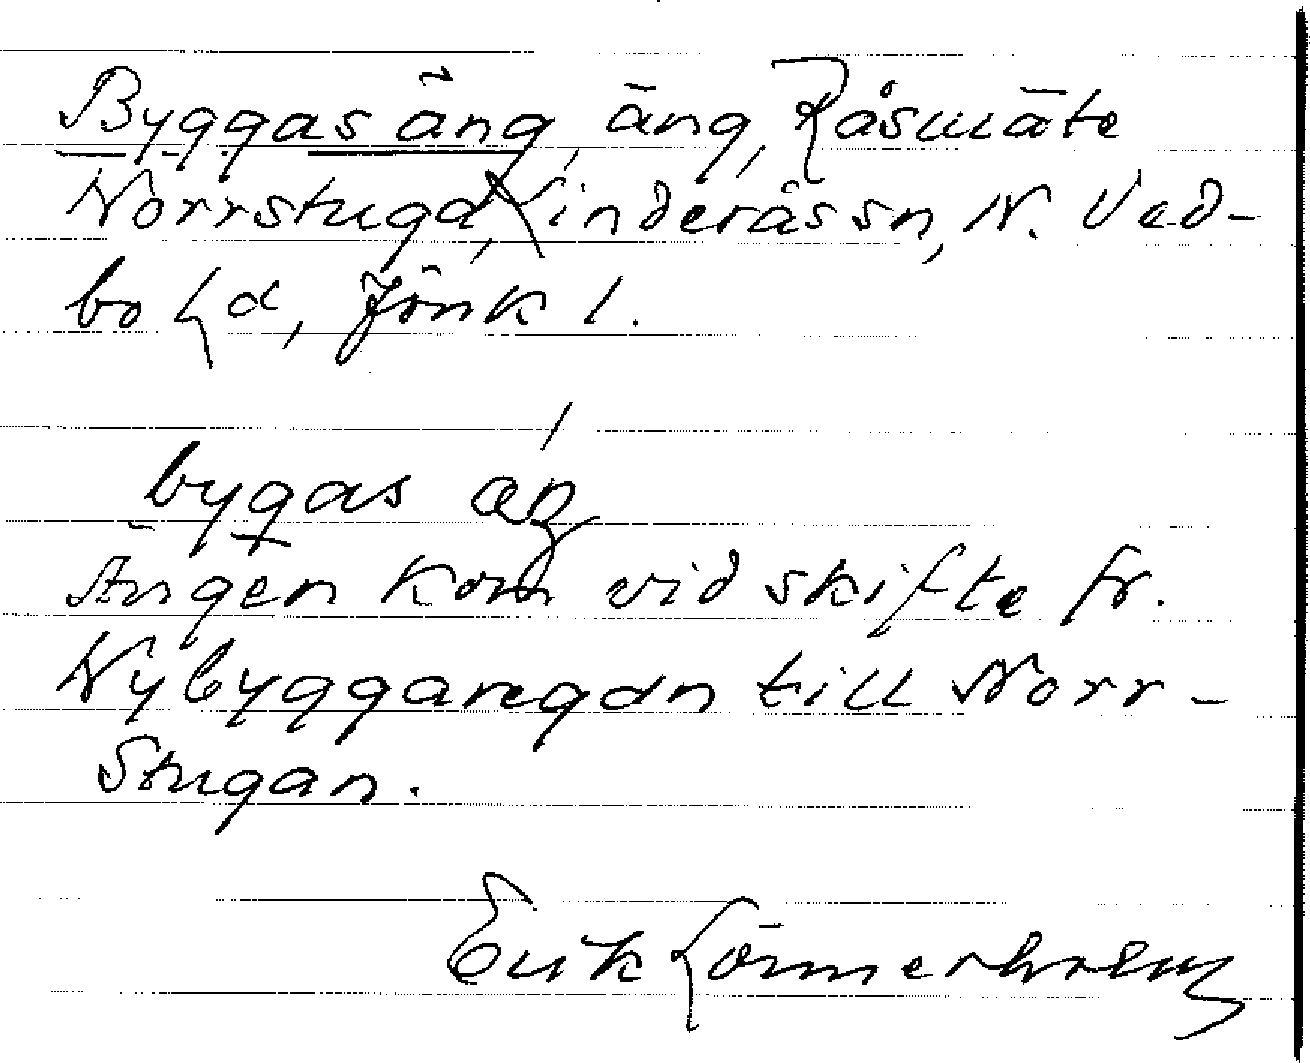 Byggas äng, äng, Råsmäte
Norrstugd, Linderås sn, N. Ved-
bo hd, Jönk l.
bygas äŋ
Ängen kom vid skifte fr.
Nybyggaregdn till Norr-
Stugan.
Erik Lönnerholm